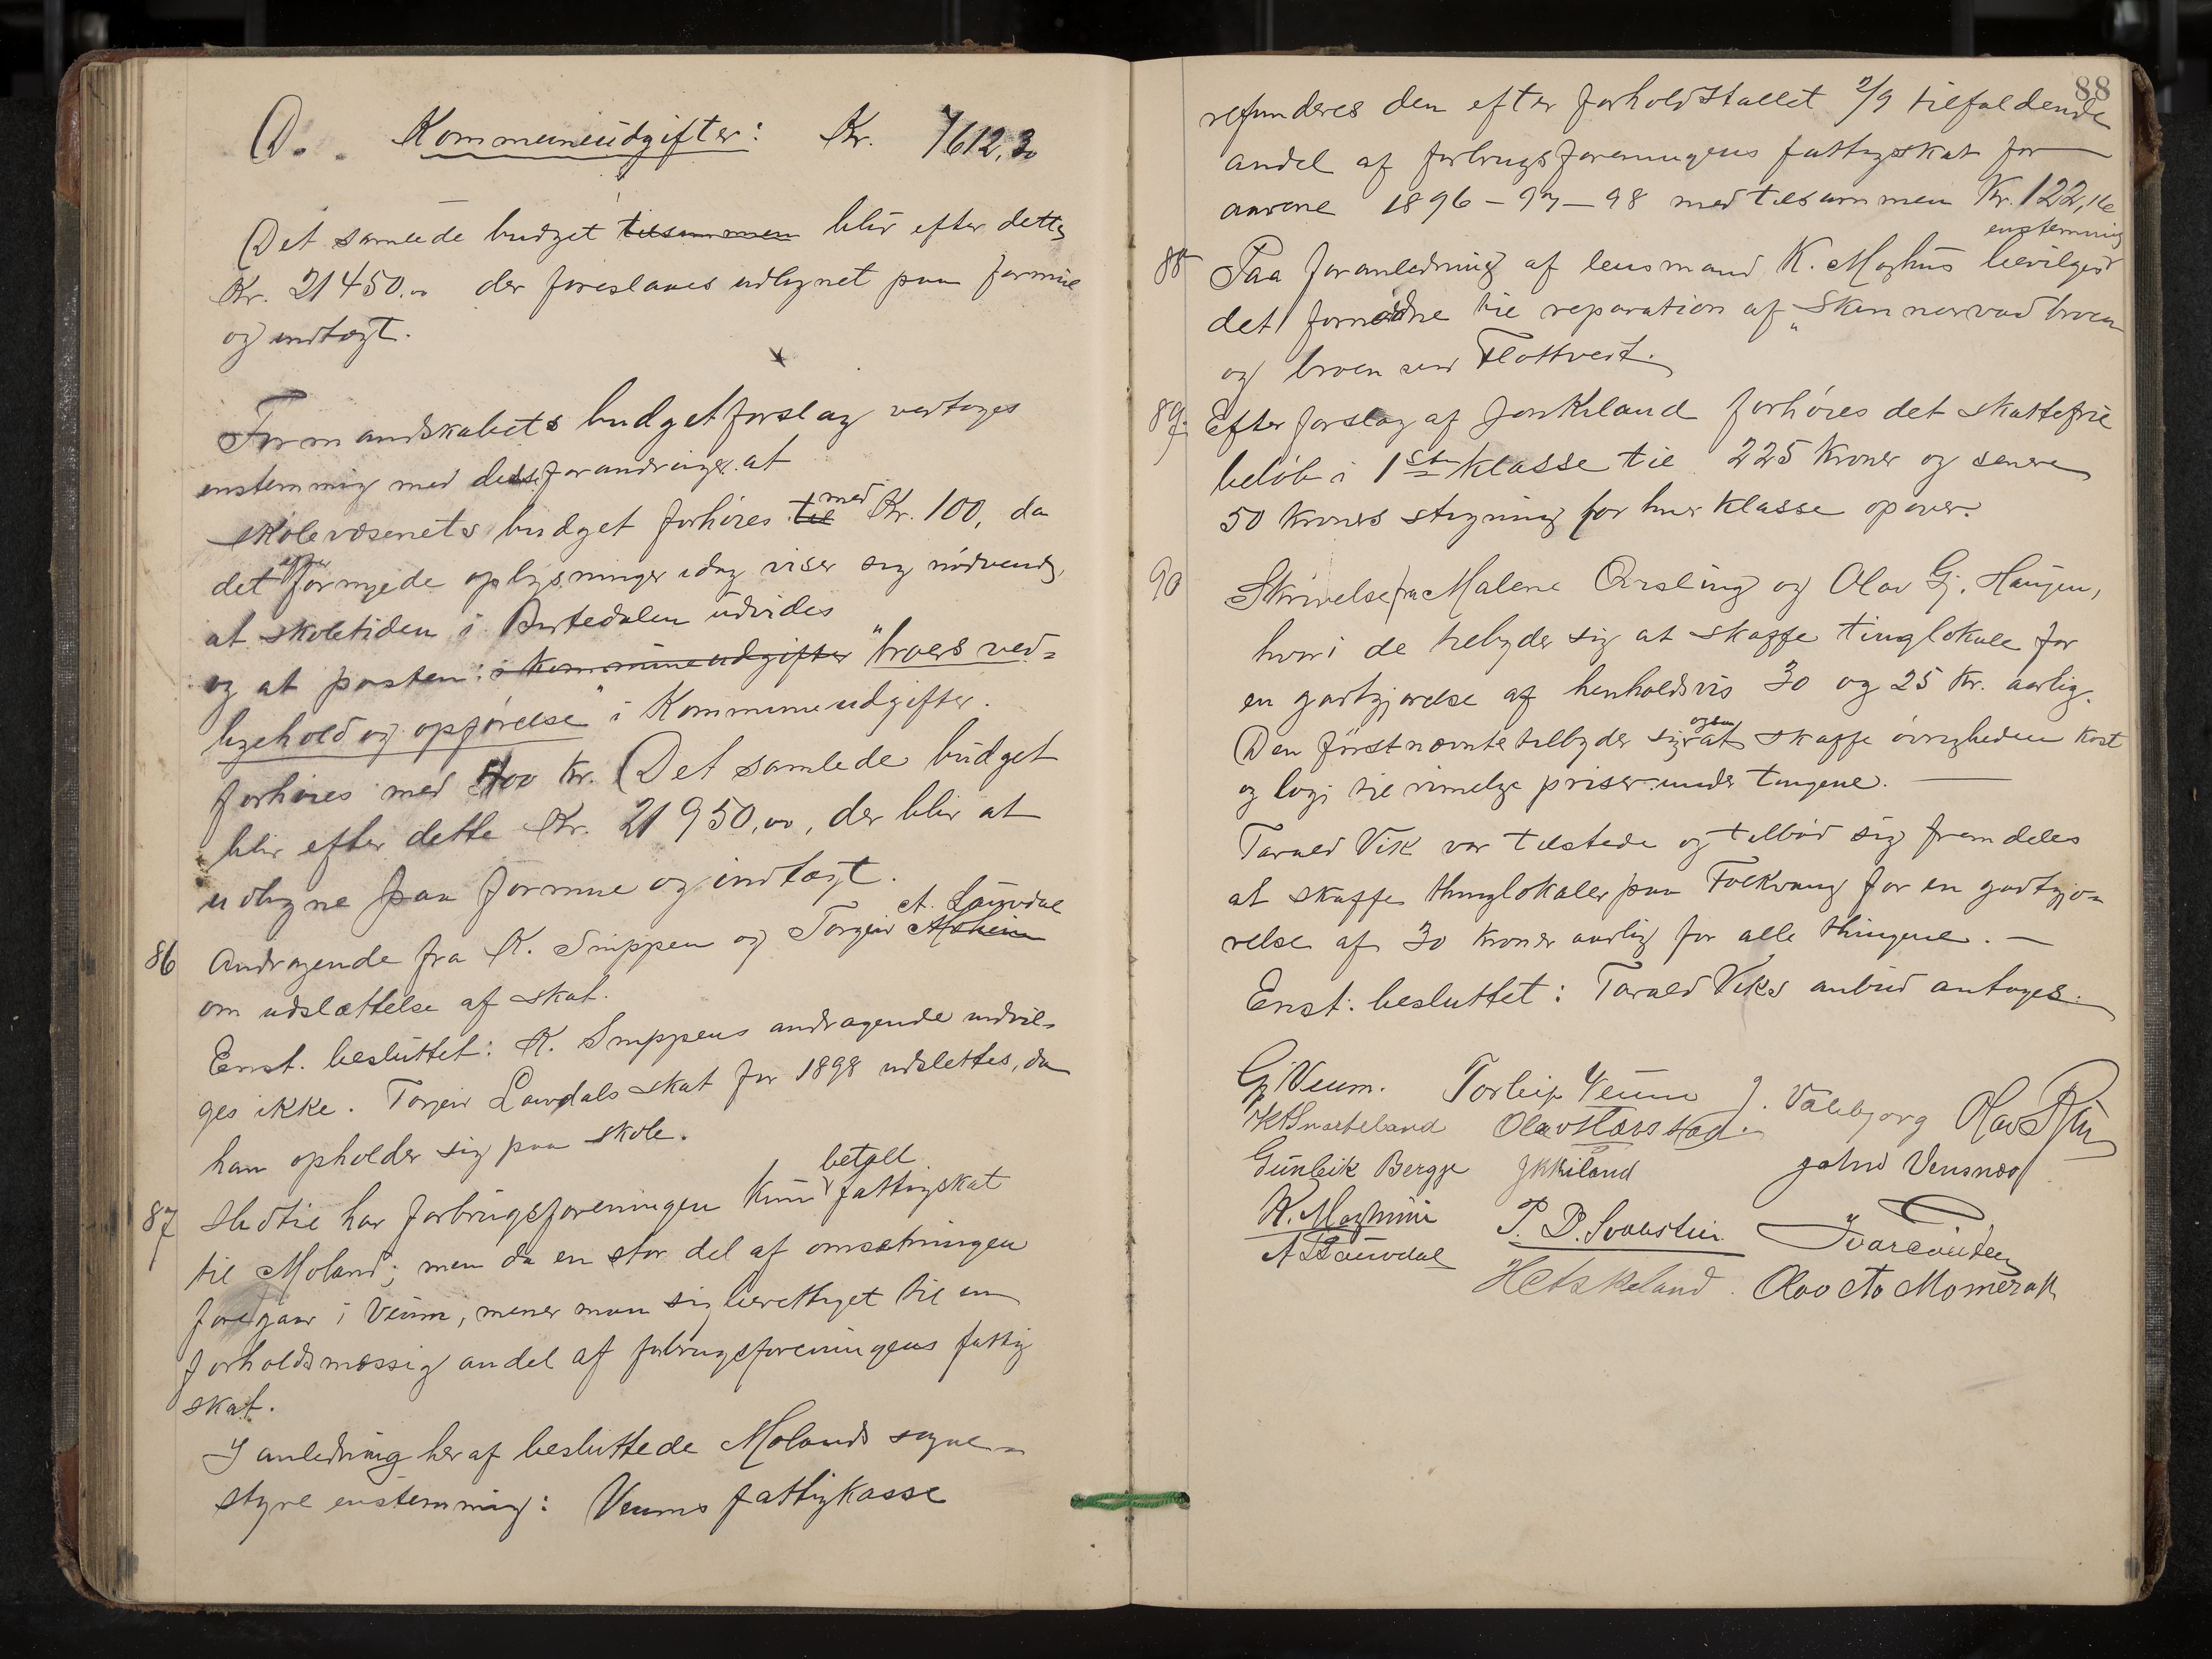 D. Kommuneudgifter: Kr. 7612,30
Det samlede budget tilsammen blir efter dette
Kr. 21450.00 der foreslaaes udlignet paa formue
og indtægt.
Formandskabets budgetforslag vedtoges
enstemmig med disse forandringer at
skolevæsenets budget forhøies til med Kr. 100, da
det efter fornyede oplysninger idag viser sig nødvendig,
at skoletiden i Bertedalen udvides
og at posten: i kommuneudgifter "broers ved=
ligehold og opførelse" i Kommuneudgifter.
forhøies med 400 kr. Det samlede budget
blir efter dette Kr. 21950,00, der blir at
udligne paa formue og indtægt.
86 Andragende fra K. Snippen og Torjeir A. Lauvdal
om udslættelse af skat.
Enst. besluttet: K. Snippens andragende indvil=
ges ikke. Torjeir Lauvdals skat for 1898 udslettes, da
han opholder sig paa skole.
87 Hidtil har forbrugsforeningen kun betalt fattigskat
til Moland; men da en stor del af omsætningen
foregaar i Veum, mener man sig berettiget til en
forholdsmæssig andel af forbrugsforeningens fattig
skat.
I anledning heraf besluttede Molands sogne=
styre enstemmig: Veums fattigkasse
88
refunderes den efter forholdstallet 2/9 tilfaldende
andel af forbrugsforeningens fattigskat for
aarene 1896-97-98 med tilsammen Kr. 122,16
88 Paa foranledning af lensmand K. Moghus bevilges enstemmig
det fornødne til reparation af "Skinnarvadbroen
og broen ved Flottveit.
89. Efter forslag af Jon Kiland forhøies det skattefrie
beløb i 1ste klasse til 225 kroner og senere
50 kroners stigning for hver klasse opover.
90 Skrivelse fra Malene Ørsling og Olav Gj. Haugen,
hvori de tilbyder sig at skaffe tinglokale for
en godtgjørelse af henholdsvis 30 og 25 kr. aarlig.
Den førstnævnte tilbyder sig ogsaa at skaffe øvrigheden kost
og logi til rimelige priser under tingene.
Tarald Vik var tilstede og tilbød sig fremdeles
at skaffe thinglokaler paa Folkvang for en godtgjø=
relse af 30 kroner aarlig for alle thingene. —
Enst. besluttet: Tarald Viks anbud antoges.
Gj Veum. Torleif Veum J. Valebjørg Olav
K A Snarteland Olav Haavstad.
Gunleik Bergje J K Kiland John Vensnes
K. Moghuus
A Lauvdal
H Etskeland. Olav Momrak